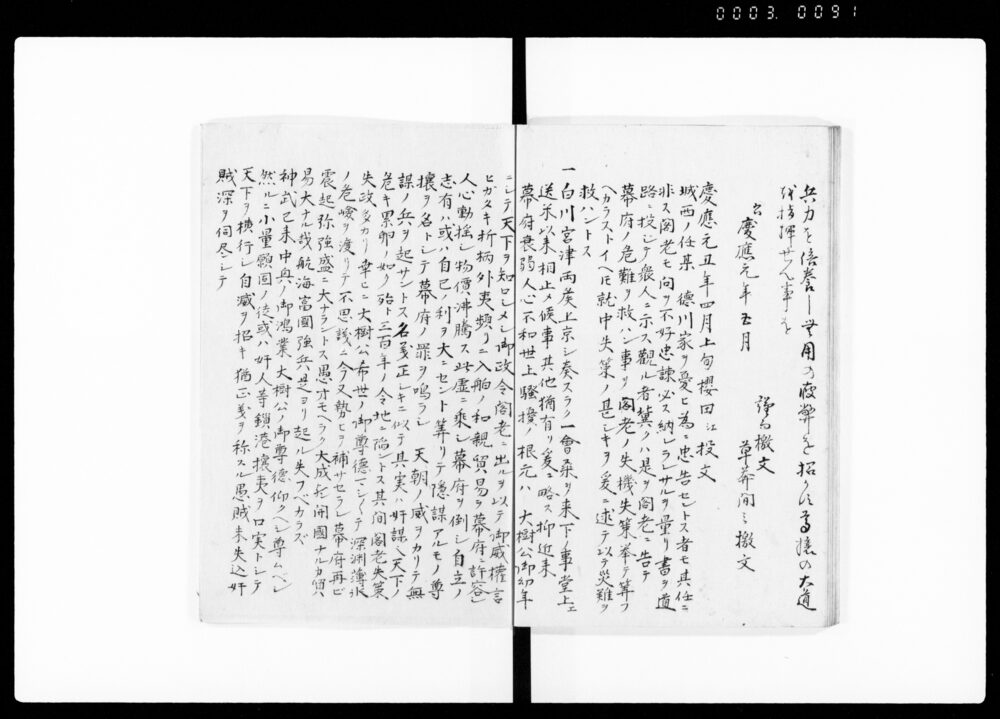 0003.0091
兵力を倍養し無用の疲弊を招かす尊攘の大道
を指揮せん事を
慶應元年五月 謹白檄文
草莽間之檄文
慶應元丑年四月上旬櫻田江投文
城西ノ任某 德川家ヲ憂ヒ為ニ忠告セントス者モ其任ニ
非ス閣老モ問ヲ不好忠諫必ス納レラレサルヲ量リ書ヲ道
路ニ投シテ衆人ニ示ス觀ル者冀クハ是ヲ閣老ニ告テ
幕府ノ危難ヲ救ハン事ヲ閣老ノ失機失策挙テ算フ
ヘカラストイヘ圧就中失策ノ甚シキヲ爰ニ述テ以テ災難ヲ
救ハントス
一白川宮津両矦上京シ奏スラク一會桑ヲ来下ノ事堂上ニ
送茶以来相止メ候事其他猶有リ爰ニ略ス抑近来
幕府衰弱人心不和世上騒擾ノ根元ハ 大樹公御幼年
ニシテ天下ヲ知ロシメシ御政令閣老ニ出ルヲ以テ御威權言
ヒガタキ折柄外夷頻リニ入舶ノ和親貿易ヲ幕府ニ許容シ
人心動揺シ物價沸騰ス此虚ニ乗シ幕府ヲ倒シ自立ノ
志有ハ或ハ自己ノ利ヲ大ニセント算リテ隠謀アルモノ尊
攘ヲ名トシテ幕府ノ罪ヲ鳴ラシ 天朝ノ威ヲカリテ無
謀ノ兵ヲ起サントス名義正シキニ似テ其実ハ奸謀ノ天下ノ
危キ累卵ノ如ク殆ト三百年ノ令地ニ陥ントス其間閣老失策
失政多カリ幸ヒニ大樹公希世ノ御尊德マシマシテ深渊薄氷
ノ危嶮ヲ渡リテ不思議ニ今又勢ヒヲ補サセラレ幕府再ビ
震起弥強盛ニ大ナラントス愚オモヘラク大成於開國ナルカ貿
易大ナル哉航海富國強兵是ヨリ起ル失フベカラズ
神武已来中興ノ御鴻業大樹公ノ御尊德仰クヘシ尊ムヘシ
然ルニ小量頑固ノ徒或ハ奸人等鎖港攘夷ヲ口実トシテ
天下ヲ横行シ自滅ヲ招キ猶正義ヲ称スル愚賊未失込奸
賊深ク伺尽シテ